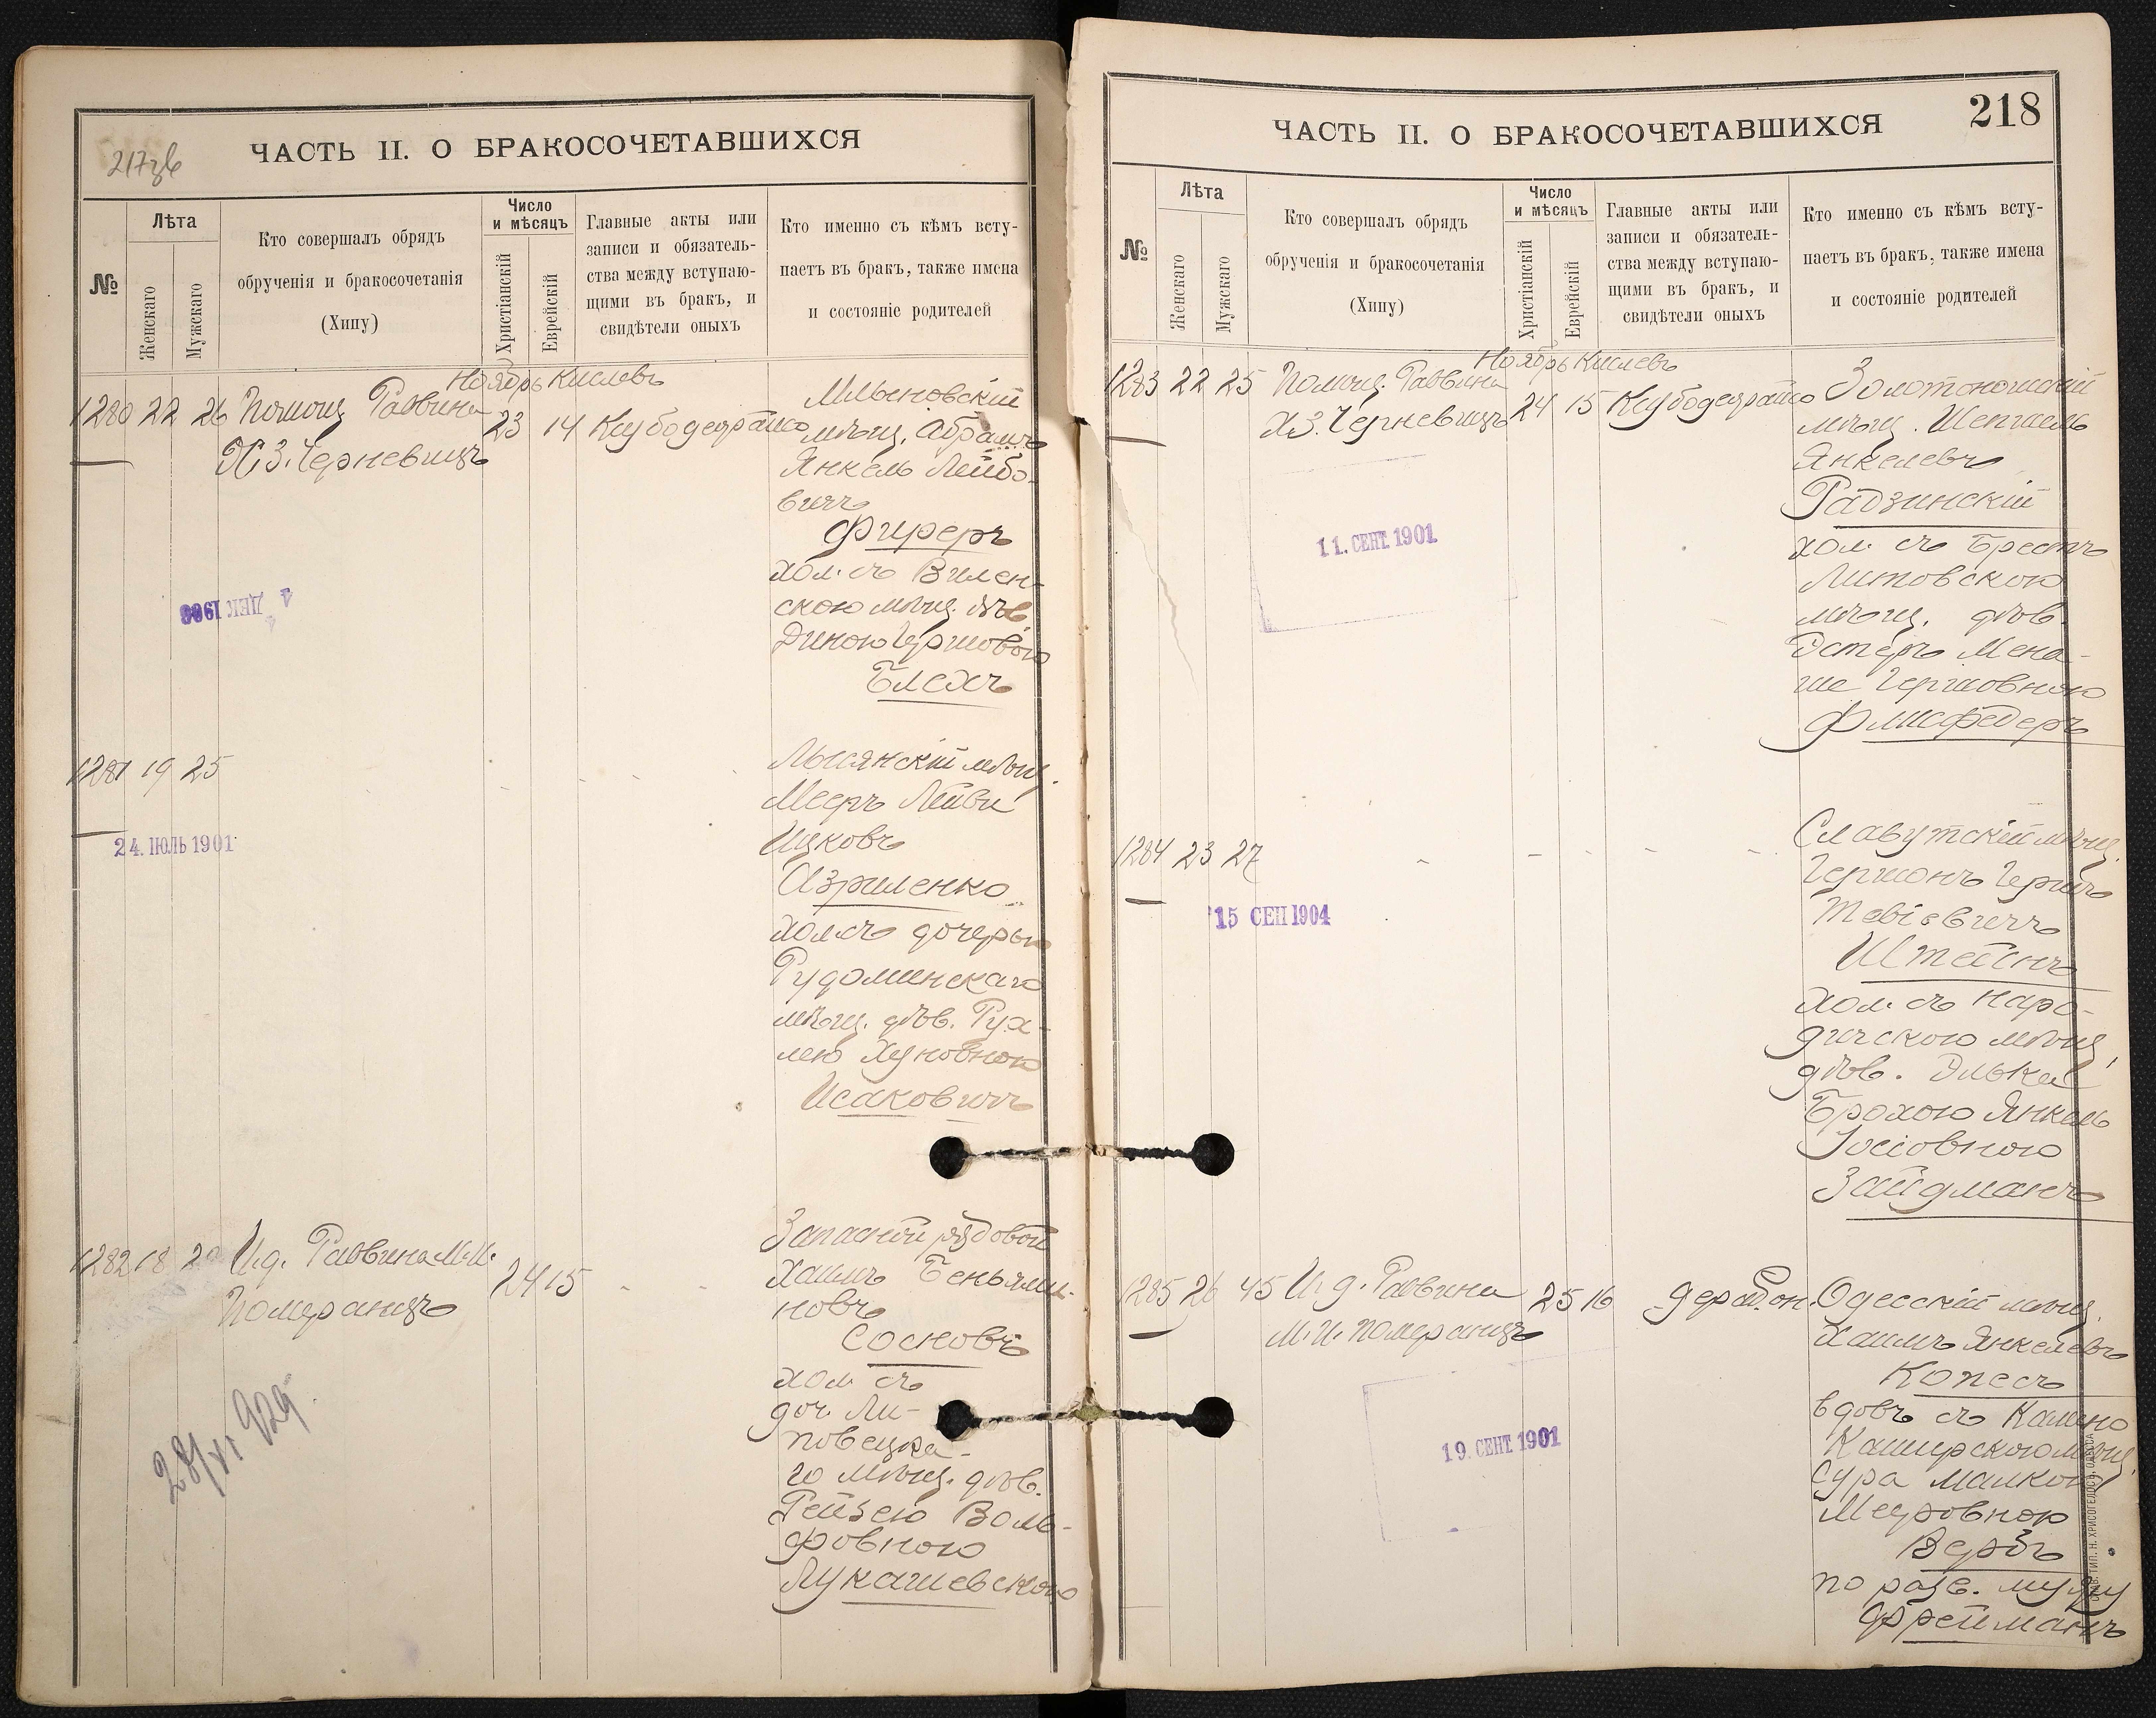 217об
ЧАСТЬ II. О БРАКОСОЧЕТАВШИХСЯ
№
Лѣта
Женскаго
Мужскаго
Кто совершалъ обрядъ
обрученія и бракосочетанія
(Хипу)
Число
и мѣсяцъ
Христіанскій
Еврейскій
Главные акты или
записи и обязатель-
ства между вступаю-
щими въ бракъ, и
свидѣтели оныхъ
Кто именно съ кѣмъ всту-
паетъ въ бракъ, также имена
и состояніе родителей
Ноябрь Кислевъ
1280 22 26 Помощ. Раввина
Х.З. Черневицъ
23 14
4 ДЕК 1906
Млыновскій
мѣщ. Абрамъ
Янкель Лейбо-
вичъ
Фиреръ
хол. съ Вилен-
скою мѣщ. дѣв.
Диною Гершовою
Блехъ
1281 19 25
24. ІЮЛЬ 1901
Лысянскій мѣщ.
Мееръ Лейви
Ицковъ
Азриленко
хол. съ дочерью
Рудоминскаго
мѣщ. дѣв. Рух-
лею Хуновною
Исаковичъ
1282 18 И.д. Раввина М.И.
Померанцъ
24 15
28/VI 929
Запасной рядовой
Хаимъ Беньями-
новъ
Сосновъ
хол. съ
доч. Ли-
повецка-
го мѣщ. дѣв.
Рейзею Воль-
фовною
Лукашевскою
218
ЧАСТЬ II. О БРАКОСОЧЕТАВШИХСЯ
№
Лѣта
Женскаго
Мужскаго
Кто совершалъ обрядъ
обрученія и бракосочетанія
(Хипу)
Число
и мѣсяцъ
Христіанскій
Еврейскій
Главные акты или
записи и обязатель-
ства между вступаю-
щими въ бракъ, и
свидѣтели оныхъ
Кто именно съ кѣмъ всту-
паетъ въ бракъ, также имена
и состояніе родителей
Ноябрь Кислевъ
1283 22 25 Помощ. Раввина
Х.З. Черневицъ
24 15
11. СЕНТ. 1901
Золотоношскій
мѣщ.
Янкелевъ
Радзинскій
хол. съ Брестъ
Литовскою
мѣщ. дѣв.
Эстеръ Мена-
ше Гершовною
Флисфедеръ
1284 23 27
15 СЕП 1904
Славутскій мѣщ.
Гершонъ Гершъ
Тевіевичъ
Штейнъ
хол. съ Наро-
дичскою мѣщ.
дѣв. Элькою
Брохою Янкель
Іосіовною
Зайдманъ
1285 26 45 И.д. Раввина
М.И. Померанцъ
25 16
19. СЕНТ. 1901
Одесскій мѣщ.
Хаимъ Янкелевъ
Копесъ
вдовъ съ Камено
Каширскою мѣщ.
Сура Малкою
Меэровною
Верба
по разв. мужу
Фрейманъ
СЛАВ. ТИП. Н. ХРИСОГЕЛОСЪ, ОДЕССА